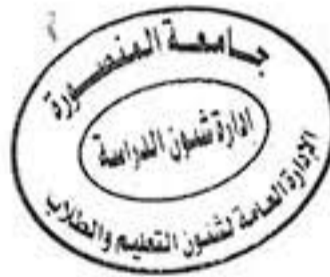 جامعة المنصورة
إدارة شئون الدراسة
الإدارة العامة لشئون التعليم والطلاب